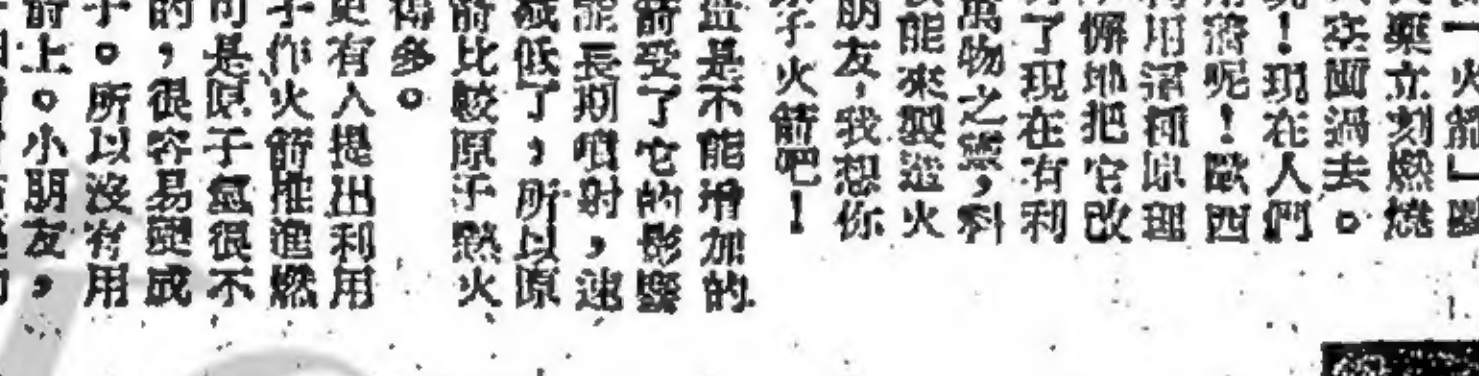 一火箭」
藥立刻燃燒
空面過去。
！現在人們
落呢！歐西
用這種原理
懈地把它改
了現在有利
萬物之靈，科
能來製造火
朋友，我想你
子火箭吧！
是不能增加的
箭受了它的影響
能長期噴射，速
減低了，所以原
箭比較原子熱火
得多。
更有人提出利用
子作火箭推進燃
可是原子氫很不
的，很容易變成
子。所以沒有用
箭上。小朋友，